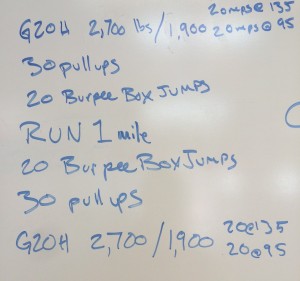 G2OH 2,700 lbs/1,900 20 mps@ 135
20 mps@ 95
30 pullups
20 Burpee Box JUMPS
RUN 1 mile
20 Burpee Box JUMPS
30 pullups
G2OH 2,700/1,900 20@135
20@95